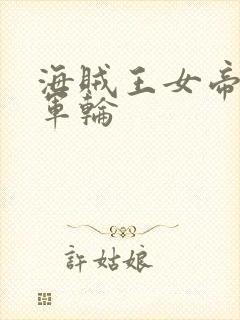 海賊王女帝
軍輪
許姑娘